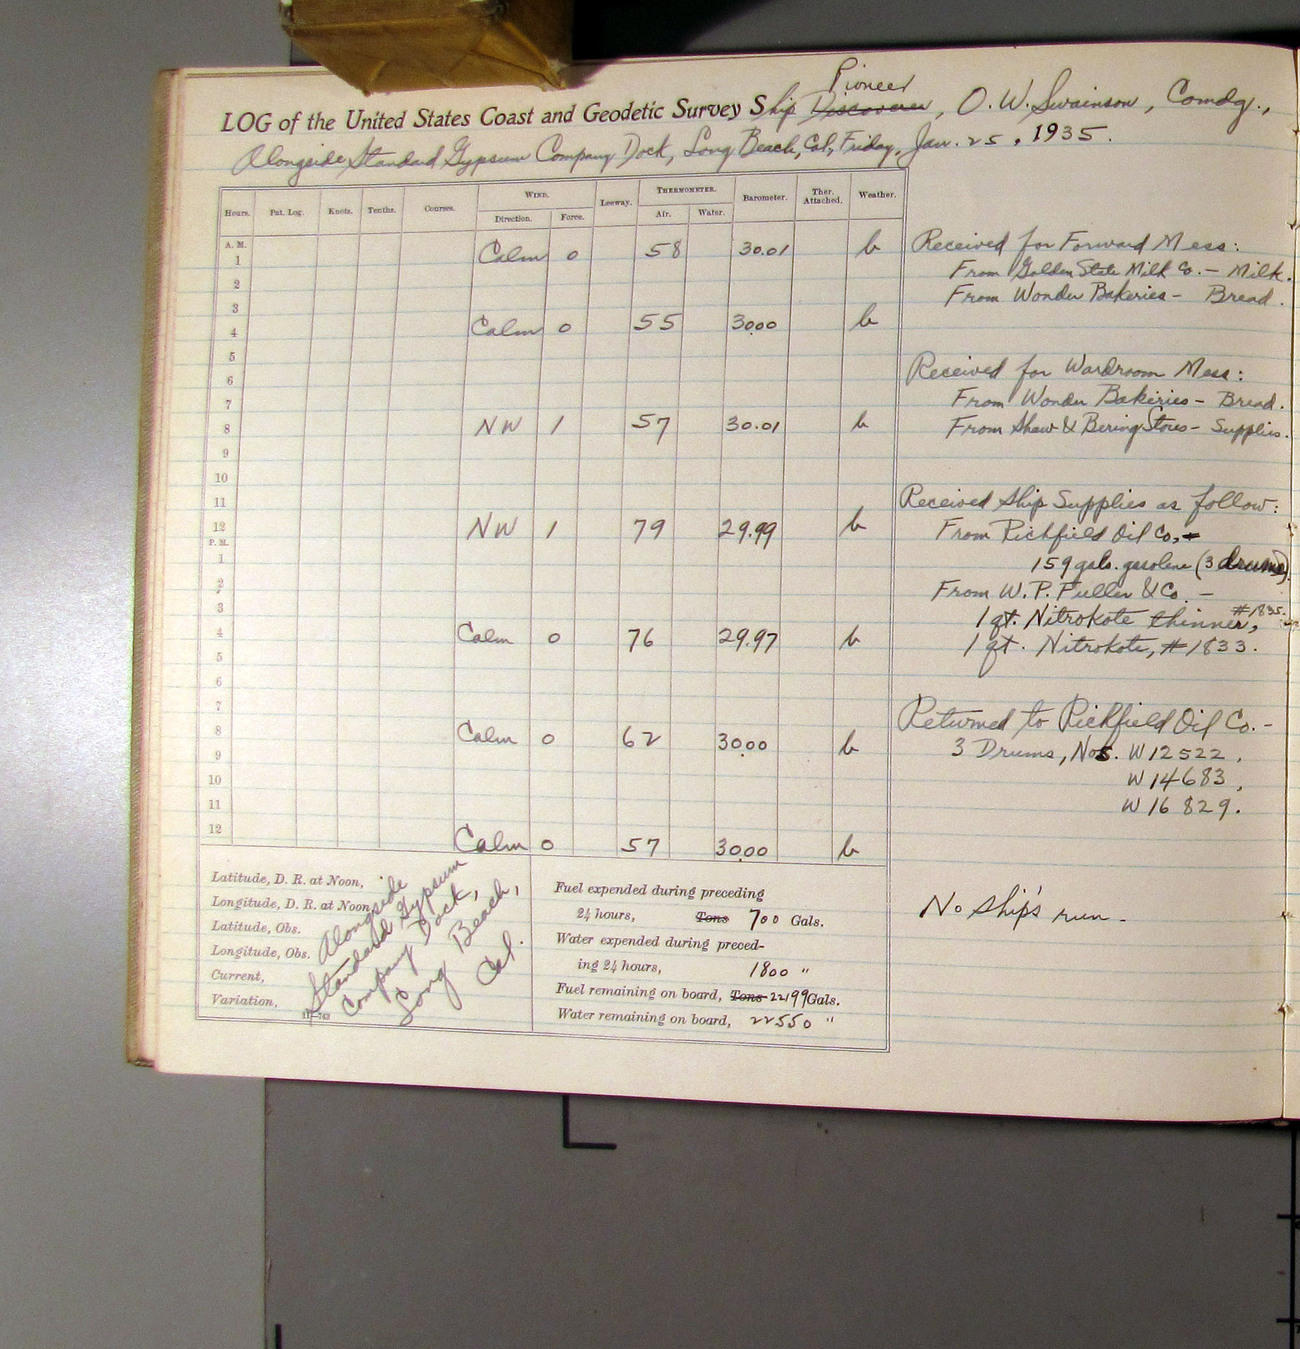 Pioneer
LOG of the United States Coast and Geodetic Survey Ship Discoverer, O. W. Swainson, Comdg.,
Alongside Standard Gypsum Company Dock, Long Beach, Cal., Friday, Jan. 25, 1935.
Hours. Pat. Log. Knots. Tenths. Courses. WIND. Leeway. THERMOMETER. Barometer. Ther. Attached. Weather.
Direction. Force. Air. Water.
A. M.
1 Calm 0 58 30.01 b
2
3
4 Calm 0 55 30.00 b
5
6
7
8 NW 1 57 30.01 b
9
10
11
12 NW 1 79 29.99 b
P. M.
1
2
3
4 Calm 0 76 29.97 b
5
6
7
8 Calm 0 62 30.00 b
9
10
11
12 Calm 0 57 30.00 b
Received for Forward Mess:
From Golden State Milk Co. – Milk.
From Wonder Bakeries – Bread.
Received for Wardroom Mess:
From Wonder Bakeries – Bread.
From Shaw & Bering Stores – Supplies.
Received Ship Supplies as follow:
From Richfield Oil Co, –
159 gals. gasoline (3 drums)
From W. P. Fuller & Co. –
1 qt. Nitrokote thinner, #1835.
1 qt. Nitrokote, #1833.
Returned to Richfield Oil Co. –
3 Drums, Nos. W12522,
W14683,
W16829.
No ship's run –
Latitude, D. R. at Noon,
Longitude, D. R. at Noon,
Latitude, Obs.
Longitude, Obs.
Current,
Variation,
Alongside
Standard Gypsum
Company Dock,
Long Beach,
Cal.
11—743
Fuel expended during preceding
24 hours, Tons 700 Gals.
Water expended during preced-
ing 24 hours, 1800 "
Fuel remaining on board, Tons 22199 Gals.
Water remaining on board, 22550 "